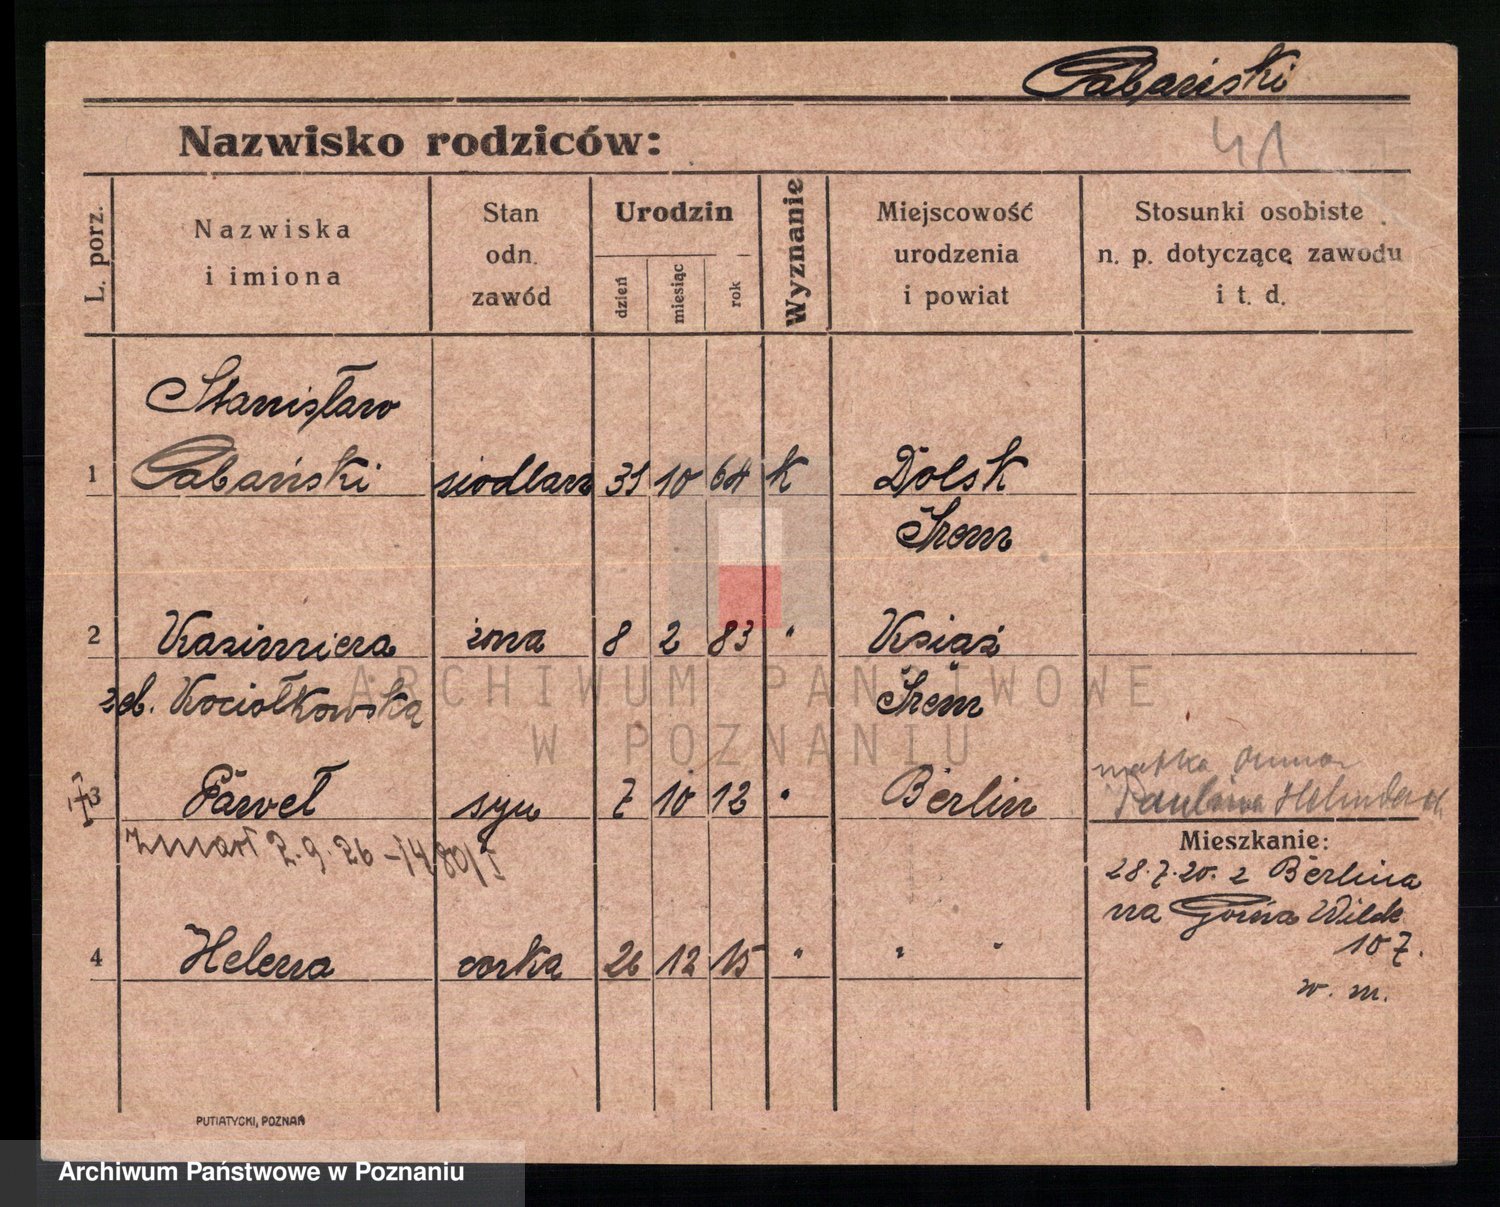 Gabański
41
Nazwisko rodziców:
L. porz.
Nazwiska
i imiona
Stan
odn.
zawód
Urodzin
dzień
miesiąc
rok
Wyznanie
Miejscowość
urodzenia
i powiat
Stosunki osobiste
n. p. dotyczące zawodu
i t. d.
Stanisław
1 Gabański siodlarz 31 10 64 K Dolsk
Śrem
2 Kazimiera żona 8 2 83 " Książ
zeb. Kociołkowska Śrem
3 Paweł syn 7 10 12 " Berlin
matka
Paulina
Zmarł 2.9.26 - 1480/I
Mieszkanie:
28.7.20. z Berlina
na Górna Wilde
107.
w. m.
4 Helena córka 26 12 15 " " "
ARCHIWUM PAŃSTWOWE
W POZNANIU
PUTIATYCKI, POZNAŃ
Archiwum Państwowe w Poznaniu